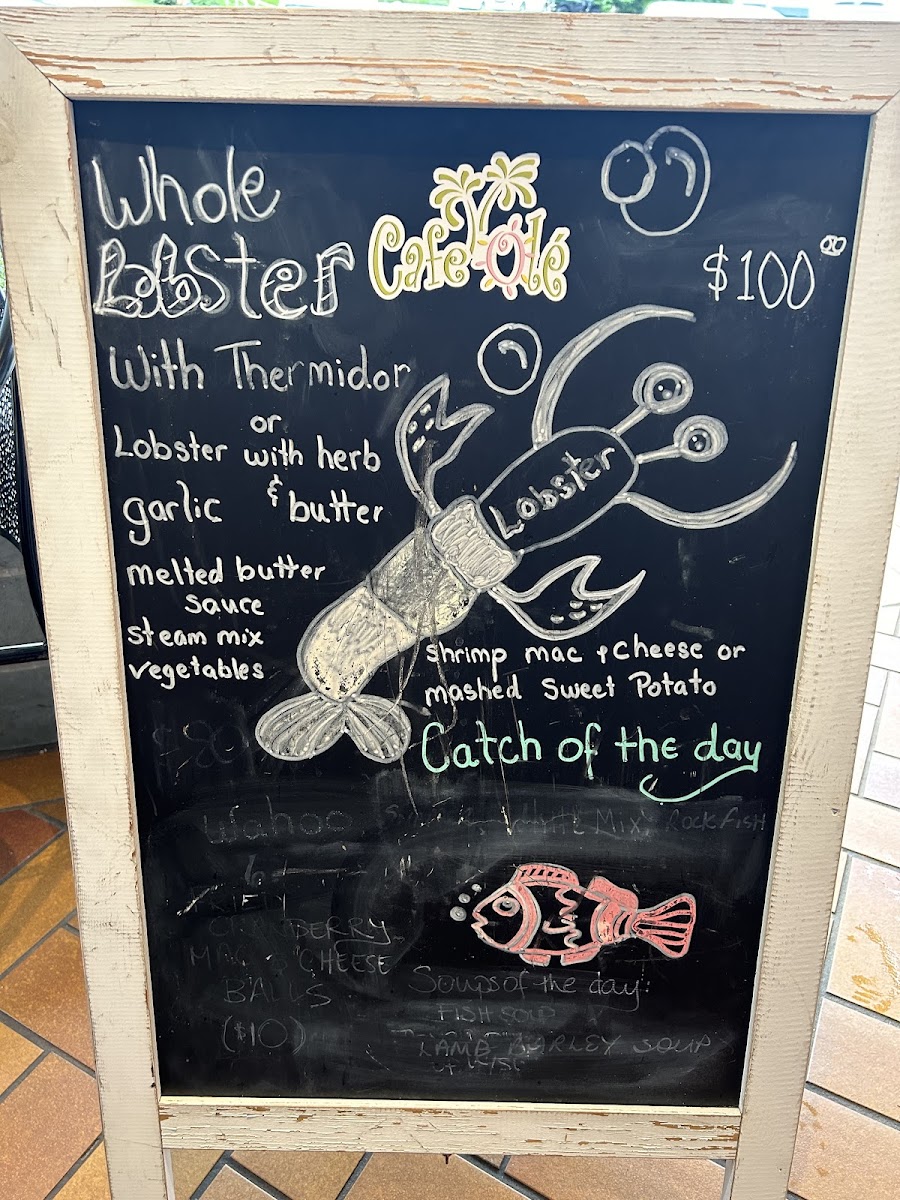 Whole
Lobster
Cafe Olé
$100.00
With Thermidor
or
Lobster with herb
garlic & butter
melted butter
sauce
steam mix
vegetables
Lobster
shrimp mac & cheese or
mashed Sweet Potato
Catch of the day
Wahoo
Mix Rockfish
CHEESE
BALLS
($10)
Soups of the day:
FISH SOUP
LAMB BARLEY SOUP